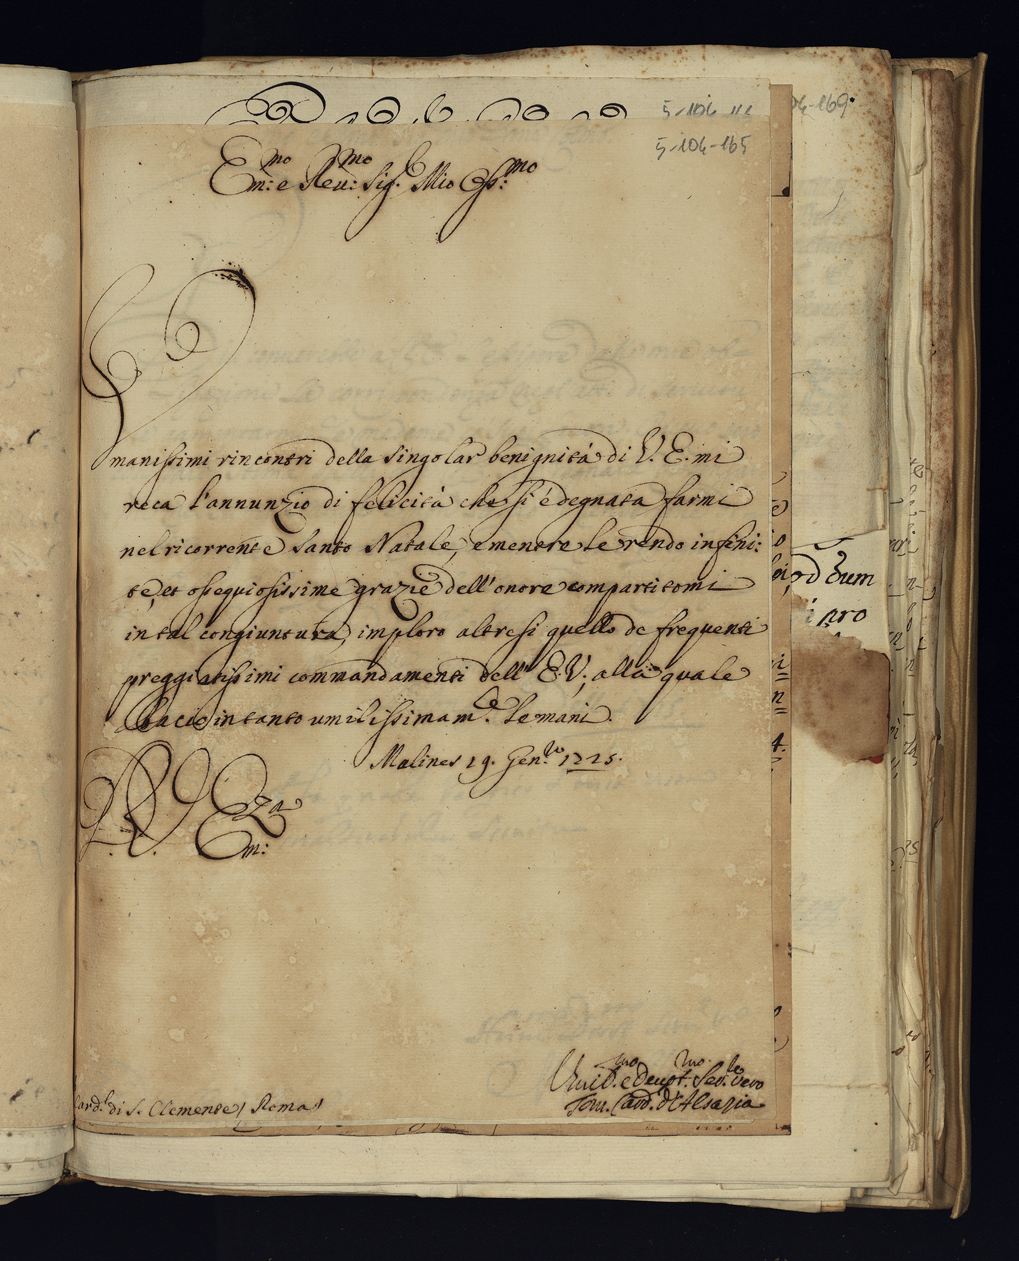 5-104-165
Em:mo e Reu:mo Sig.r Mio Oss:mo
Umanissimi rincontri della singolar benignità di V. E. mi
reca l'annunzio di felicità che si è degnata farmi
nel ricorrente Santo Natale, e mentre le rendo infini:
te, et ossequiosissime grazie dell'onore compartitomi
in tal congiuntura, imploro altresi quello de frequenti
preggiatissimi commandamenti dell'E. V., alla quale
bacio intanto umilissimam.te le mani.
Malines 19. Gen.ro 1725.
D. V. Em:za
Umil.mo e Deuot.mo Ser.le Vero
Tom. Card. d'Alsazia
Card.l di S. Clemente / Roma /
-169
od eum
pro